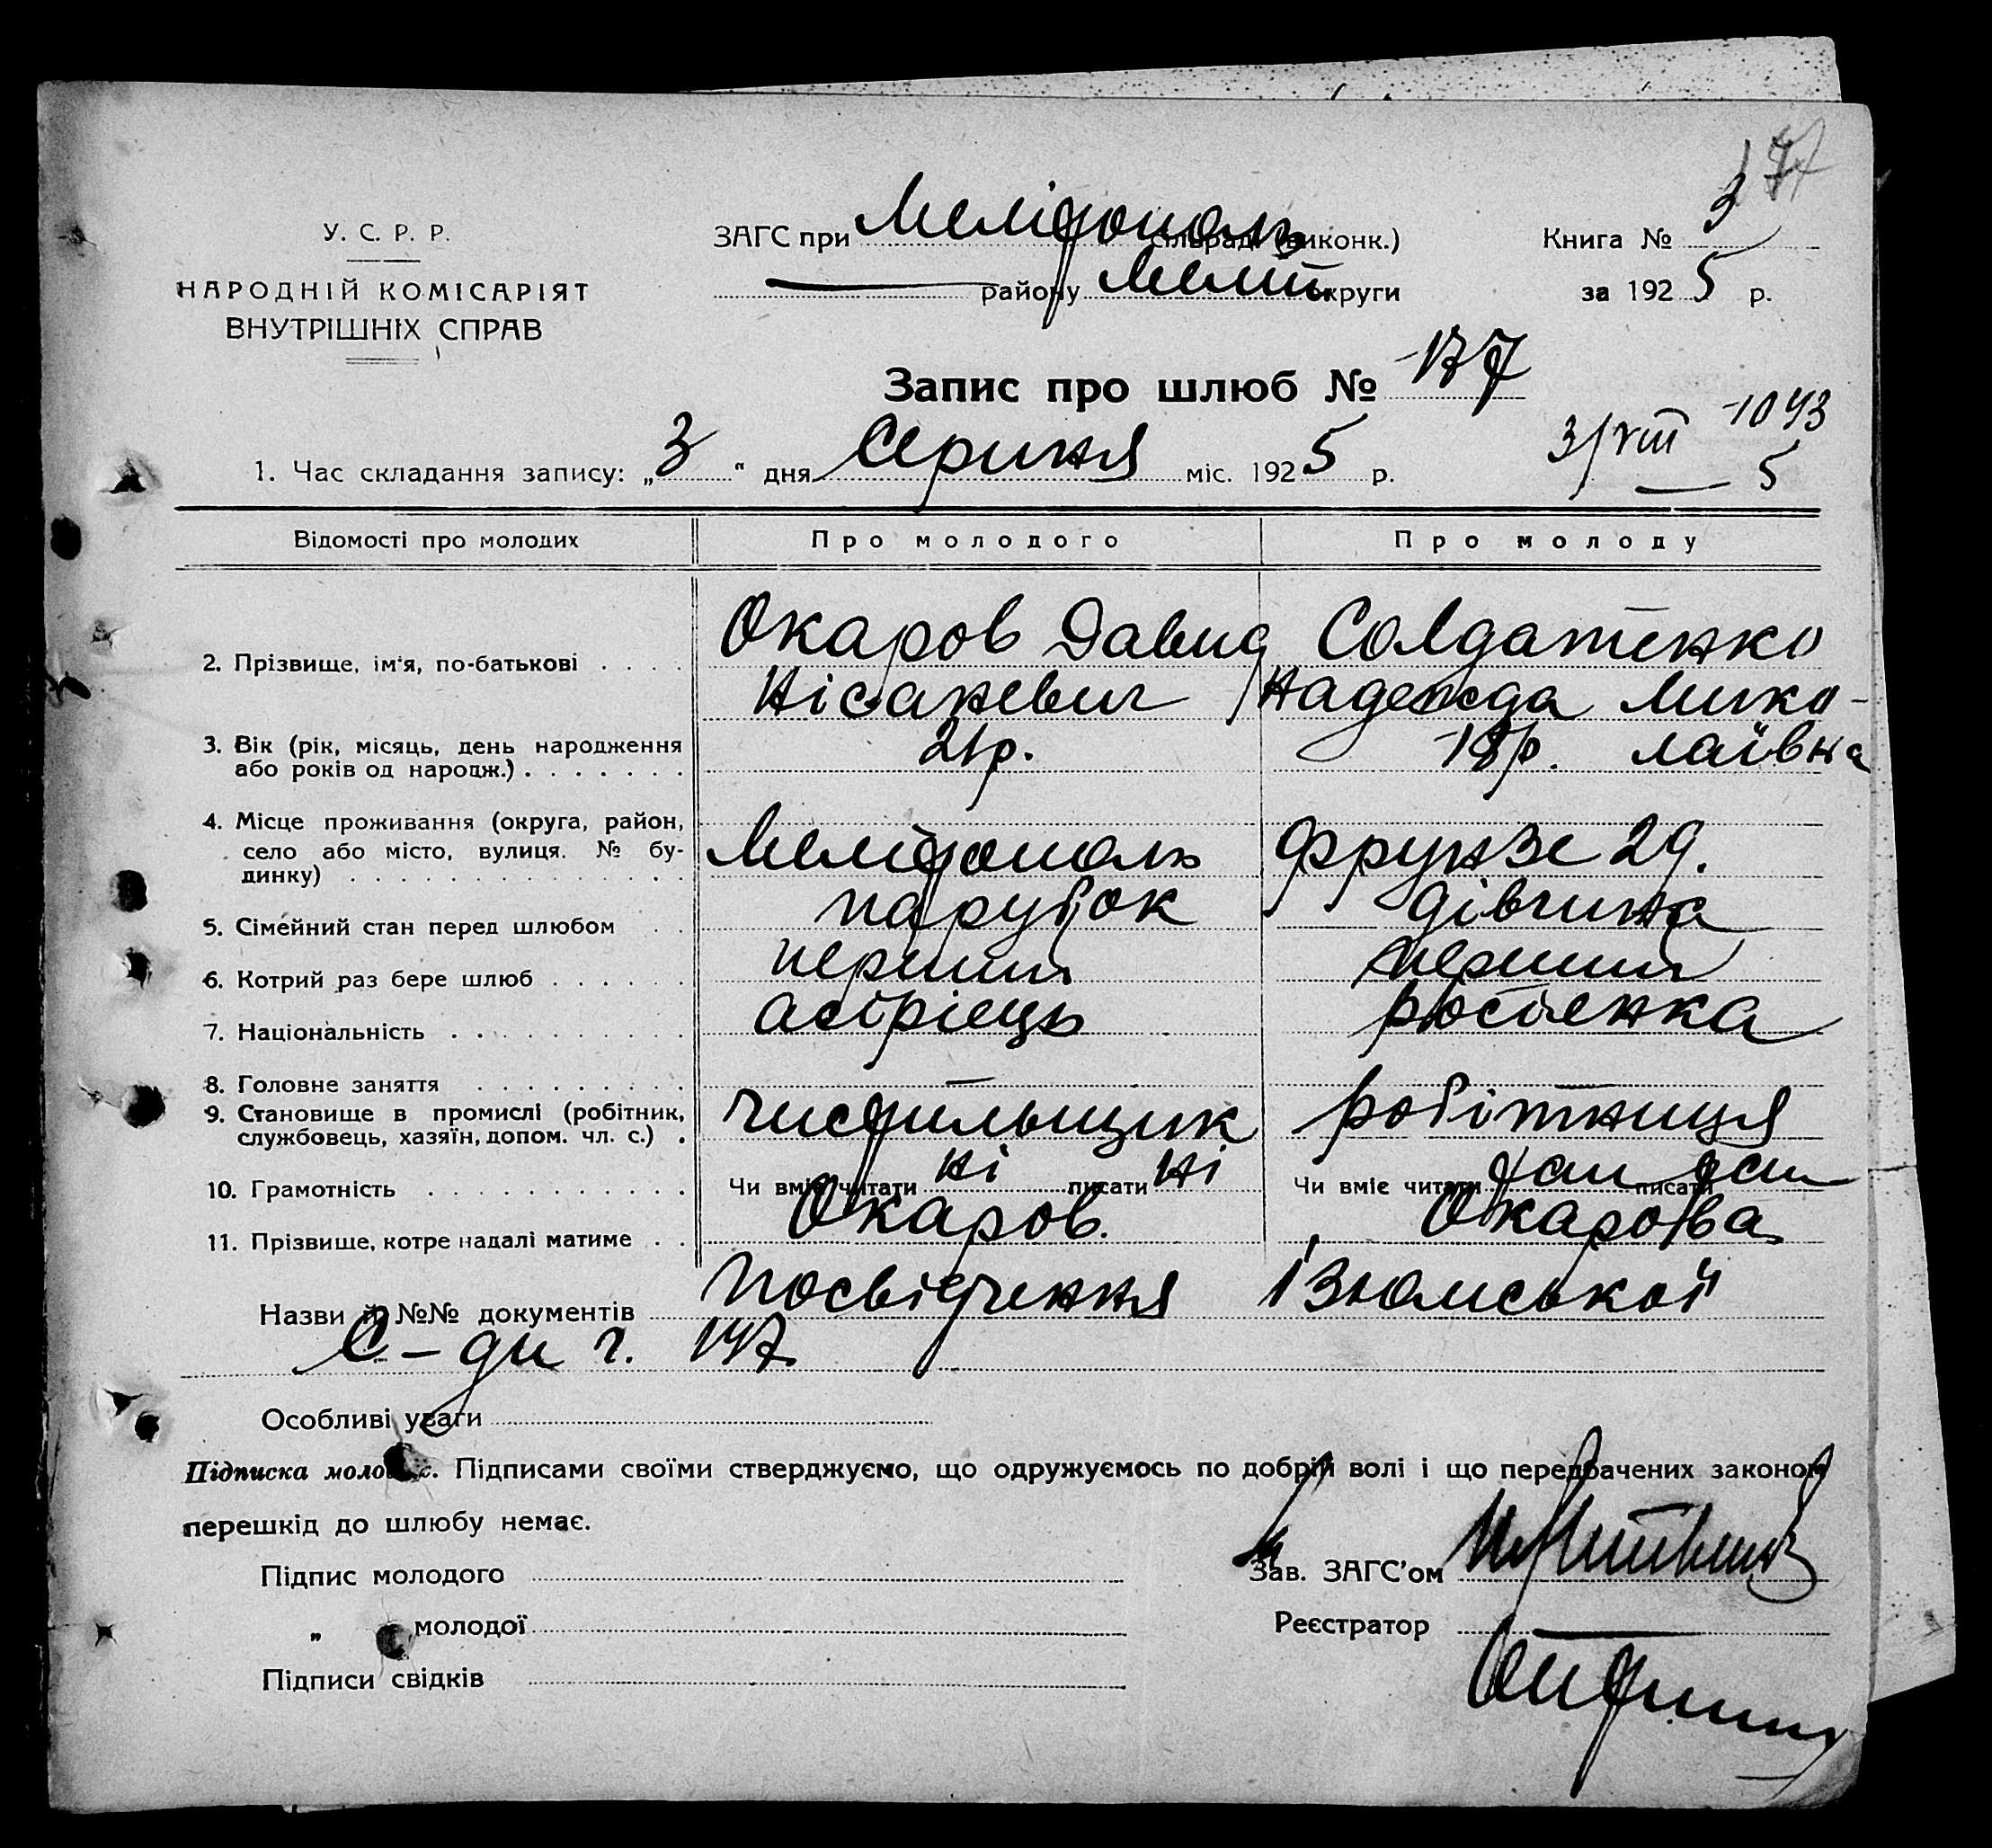 У. С. Р. Р.
НАРОДНІЙ КОМІСАРІЯТ
ВНУТРІШНІХ СПРАВ
ЗАГС при Мелітополь сільраді (виконк.)
району Меліт. округи
Книга № 3
за 1925 р.
Запис про шлюб № 177
1. Час складання запису: „3" дня Серпня міс. 1925 р.
3/VIII 1043
5
Відомості про молодих Про молодого Про молоду
2. Прізвище, ім'я, по-батькові . . . . Окаров Давид Солдатенко
Нісаневич Надежда Мико-
3. Вік (рік, місяць, день народження 21р. 18р. лаївна
або років од народж.) . . . . . . .
4. Місце проживання (округа, район,
село або місто, вулиця. № бу- Мелітополь Фрунзе 29.
динку) . . . . . . . . . . . . . .
5. Сімейний стан перед шлюбом . . парубок дівчина
6. Котрий раз бере шлюб . . . . . . перший перший
7. Національність . . . . . . . . . . асірієць росіенка
8. Головне заняття . . . . . . . . . — —
9. Становище в промислі (робітник, чистильщик робітниця
службовець, хазяїн, допом. чл. с.) .
10. Грамотність . . . . . . . . . . . Чи вміє читати ні писати ні Чи вміє читати так писати так
11. Прізвище, котре надалі матиме . . Окаров. Окарова
Назви й №№ документів посвідчення Ізюмської
С-ди ч. 147
Особливі уваги
Підписка молодих. Підписами своїми стверджуємо, що одружуємось по добрій волі і що передбачених законом
перешкід до шлюбу немає.
Підпис молодого
Зав. ЗАГС'ом
„ молодої
Реєстратор
Підписи свідків